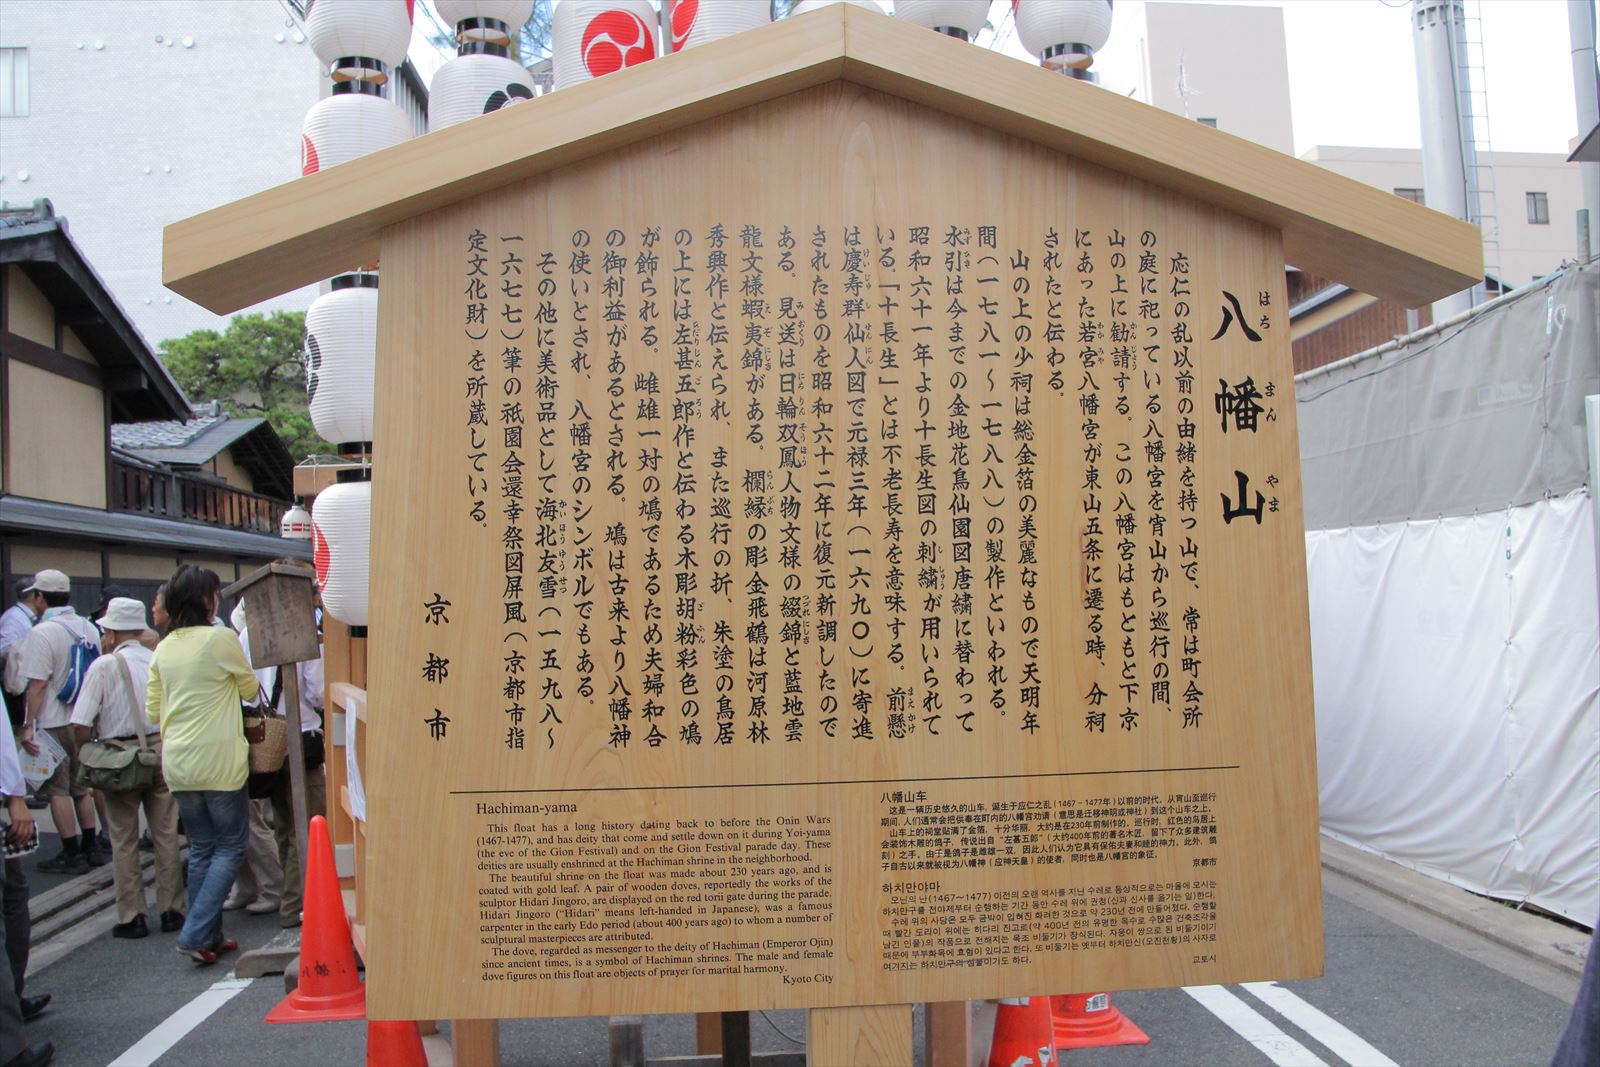 八幡山
はち まん やま
応仁の乱以前の由緒を持つ山で、常は町会所
の庭に祀っている八幡宮を宵山から巡行の間、
山の上に勧請する。この八幡宮はもともと下京
にあった若宮八幡宮が東山五条に遷る時、分祠
されたと伝わる。
山の上の少祠は総金箔の美麗なもので天明年
間(一七八一〜一七八八)の製作といわれる。
水引は今までの金地花鳥仙園図唐繍に替わって
昭和六十一年より十長生図の刺繍が用いられて
いる。「十長生」とは不老長寿を意味する。前懸
は慶寿群仙人図で元禄三年(一六九〇)に寄進
されたものを昭和六十二年に復元新調したもので
ある。見送は日輪双鳳人物文様の綴錦と藍地雲
龍文様蝦夷錦がある。欄縁の彫金飛鶴は河原林
秀興作と伝えられ、また巡行の折、朱塗の鳥居
の上には左甚五郎作と伝わる木彫胡粉彩色の鳩
が飾られる。雌雄一対の鳩であるため夫婦和合
の御利益があるとされる。鳩は古来より八幡神
の使いとされ、八幡宮のシンボルでもある。
その他に美術品として海北友雪(一五九八〜
一六七七)筆の祇園会還幸祭図屏風(京都市指
定文化財)を所蔵している。
京都市
Hachiman-yama
This float has a long history dating back to before the Onin Wars
(1467-1477), and has deity that come and settle down on it during Yoi-yama
(the eve of the Gion Festival) and on the Gion Festival parade day. These
deities are usually enshrined at the Hachiman shrine in the neighborhood.
The beautiful shrine on the float was made about 230 years ago, and is
coated with gold leaf. A pair of wooden doves, reportedly the works of the
sculptor Hidari Jingoro, are displayed on the red torii gate during the parade.
Hidari Jingoro ("Hidari" means left-handed in Japanese), was a famous
carpenter in the early Edo period (about 400 years ago) to whom a number of
sculptural masterpieces are attributed.
The dove, regarded as messenger to the deity of Hachiman (Emperor Ojin)
since ancient times, is a symbol of Hachiman shrines. The male and female
dove figures on this float are objects of prayer for marital harmony.
Kyoto City
八幡山车
这是一辆历史悠久的山车，诞生于应仁之乱(1467－1477年)以前的时代。从宵山至巡行
期间，人们通常会把供奉在町内的八幡宫劝请(意思是迁移神明或神社)到这个山车之上。
山车上的祠堂贴满了金箔，十分华丽，大约是在230年前制作的。巡行时，红色的鸟居上
会装饰木雕的鸽子，传说出自"左甚五郎"(大约400年前的著名木匠，留下了众多建筑雕
刻)之手。由于是鸽子是雌雄一双，因此人们认为它具有保佑夫妻和睦的神力。此外，鸽
子自古以来就被视为八幡神(应神天皇)的使者，同时也是八幡宫的象征。
京都市
하치만야마
오닌의 난(1467～1477) 이전의 오랜 역사를 지닌 수레로 통상적으로는 마을에 모시는
하치만구를 전야제부터 순행하는 기간 동안 수레 위에 권청(신과 신사를 옮기는 일)한다.
수레 위의 사당은 모두 금박이 입혀진 화려한 것으로 약 230년 전에 만들어졌다. 순행할
때 빨간 도리이 위에는 히다리 진고로(약 400년 전의 유명한 목수로 수많은 건축조각을
남긴 인물)의 작품으로 전해지는 목조 비둘기가 장식된다. 자웅이 쌍으로 된 비둘기이기
때문에 부부화목에 효험이 있다고 한다. 또 비둘기는 옛부터 하치만신(오진천황)의 사자로
여겨지는 하치만구의 심볼이기도 하다.
교토시